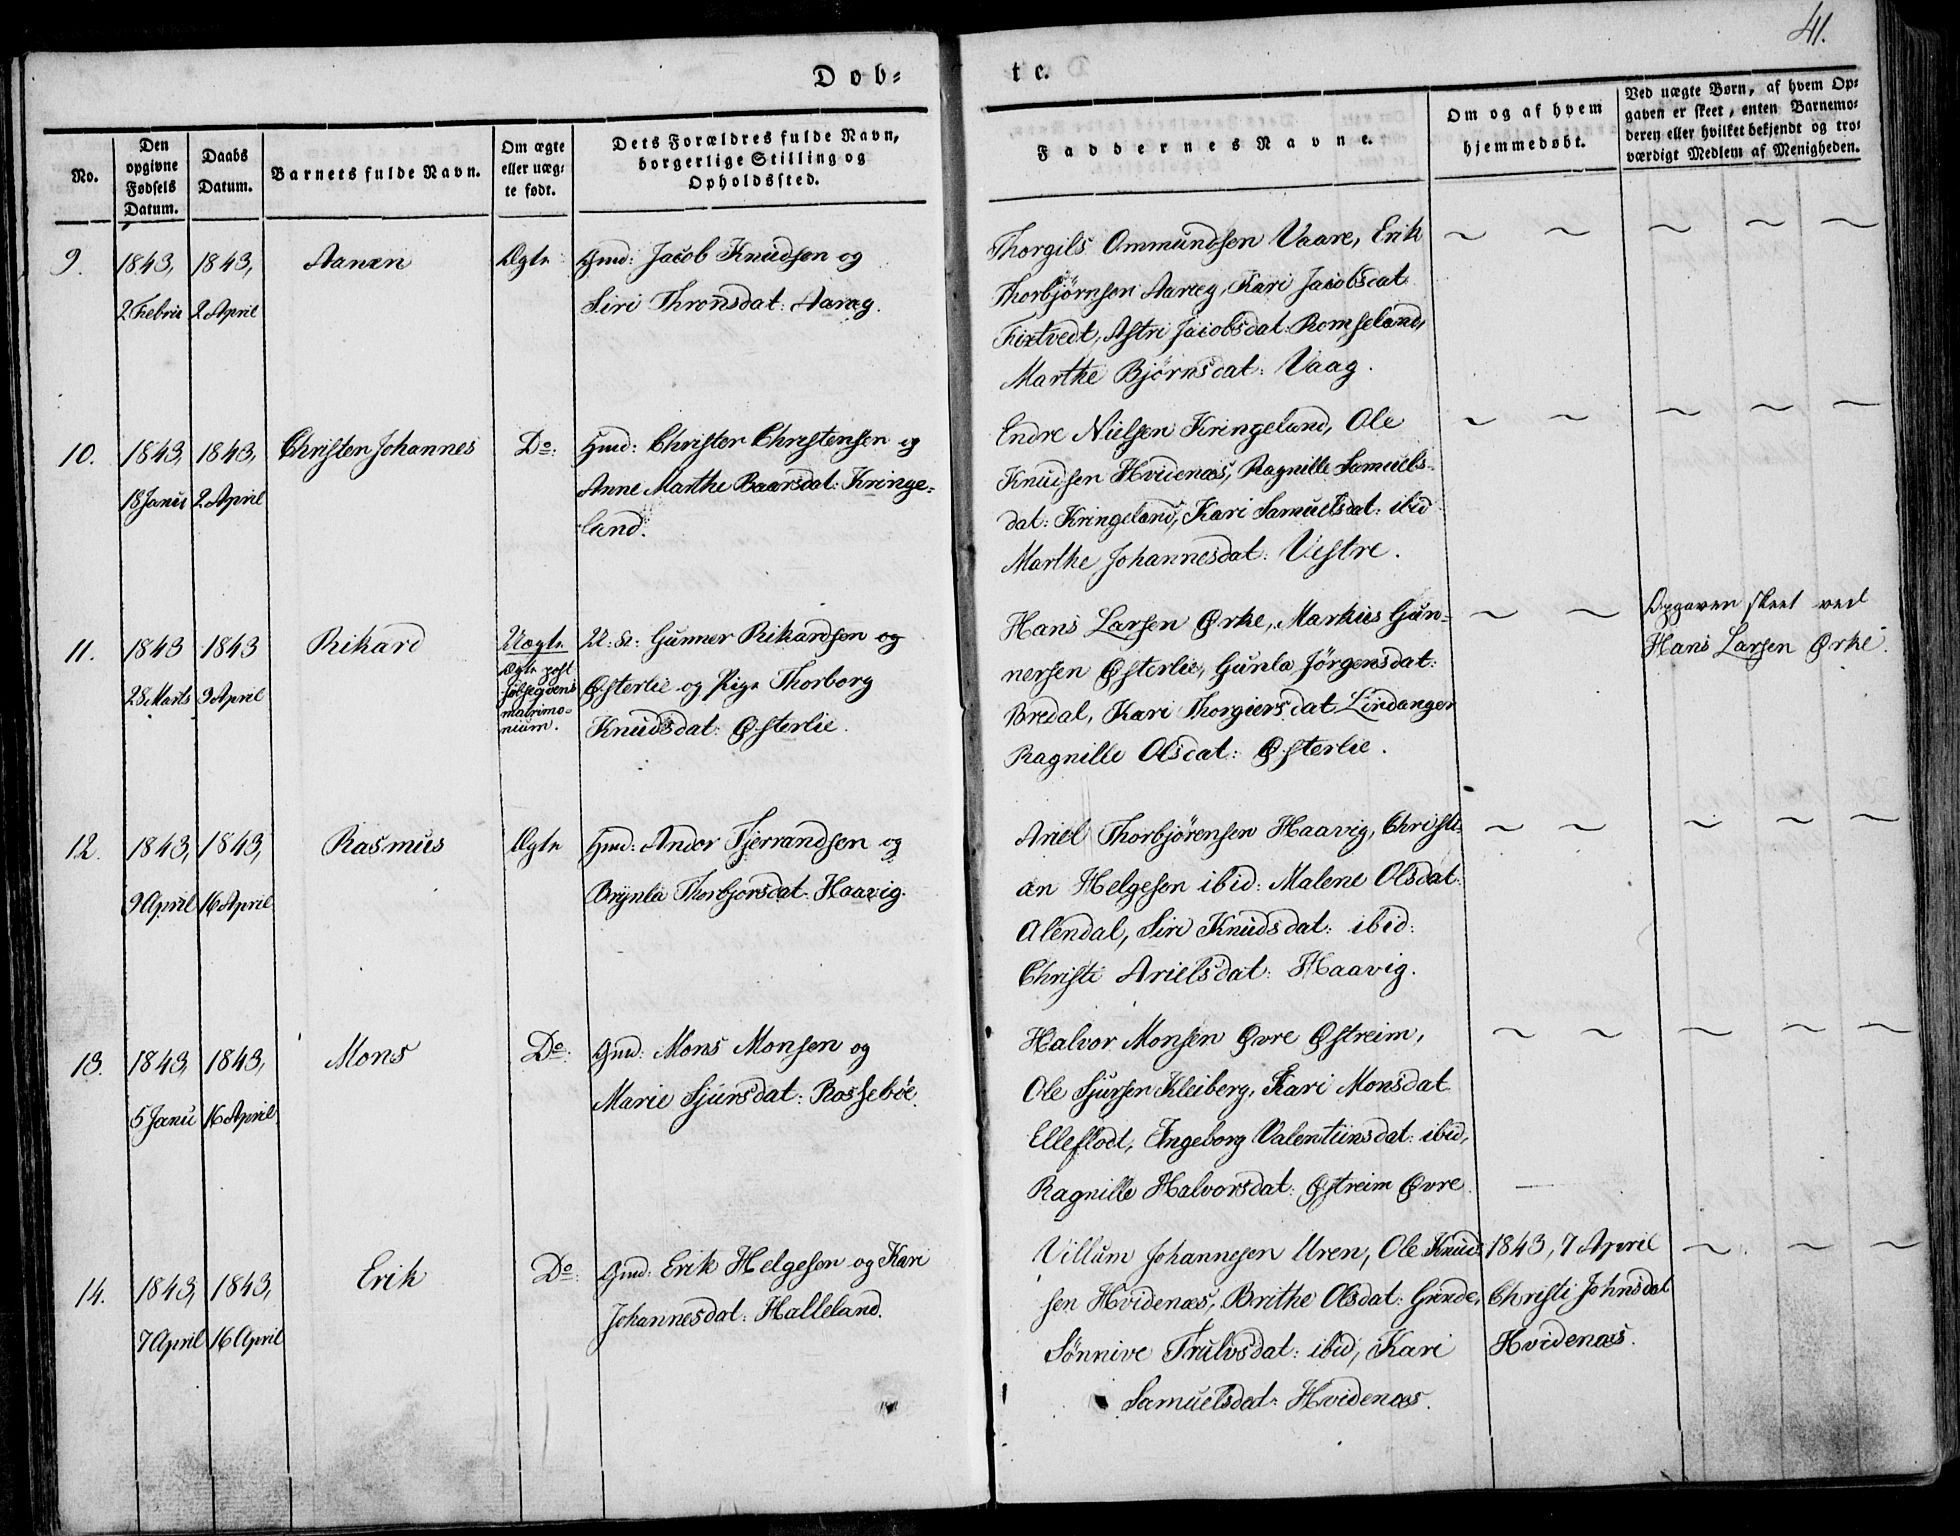 41.
Dob=
te.
No.
Den opgivne Fødsels Datum.
Daabs Datum.
Barnets fulde Navn.
Om ægte eller uæg= te født.
Dets Forældres fulde Navn, borgerlige Stilling og Opholdssted.
Faddernes Navne.
Om og af hvem hjemmedøbt.
Ved uægte Børn, af hvem Op= gaven er skeet, enten Barnemo= deren eller hvilket bekjendt og tro= værdigt Medlem af Menigheden.
9. 1843, 1843, Aanen Ægte Gmd: Jacob Knudsen og
2 Febru 2 April Siri Thronsdat: Aaræg.
Thorgils Ommundsen Vaare, Erik
Thorbjørnsen Aaræg, Kari Jacobsdat
Fixtvedt, Astri Jacobsdat: Romseland,
Marthe Bjørnsdat: Vaag.
10. 1843, 1843, Christen Johannes Do: Hmd: Christen Christensen og
18 Janu 2 April Anne Marthe Baarsdat: Kringe=
land.
Endre Nielsen Kringeland, Ole
Knudsen Hvidenæs, Ragnille Samuels=
dat: Kringeland, Kari Samuelsdat: ibid
Marthe Johannesdat: Vestre.
11. 1843 1843 Rikard Uægte U: K: Gunner Rikardsen og
28 Marts 9 April Ægte post følgegvens matrimo= nium. Østerlie og Pige Thorborg
Knudsdat: Østerlie.
Hans Larsen Ørke, Markus Gun=
nersen Østerlie, Gunla Jörgensdat:
Bredal, Kari Thorgiersdat Lindanger
Ragnille Olsdat: Østerlie.
Opgaven skeet ved
Hans Larsen Ørke.
12. 1843, 1843, Rasmus Ægte Hmd: Andor Tjerrandsen og
9 April 16 April Brynla Thorbjorsdat: Haavig.
Ariel Thorbjørensen Haavig, Christi=
an Helgesen ibid: Malene Olsdat:
Alendal, Siri Knudsdat: ibid:
Christi Arielsdat: Haavig.
13. 1843, 1843, Mons Do: Gmd: Mons Monsen og
5 Janu 16 April Marie Sjursdat: Rossebøe.
Halvor Monsen Øvre Østreim,
Ole Sjursen Kleiberg, Kari Monsdat
Elleflodt, Ingeborg Valentinsdat: ibid,
Ragnille Halvorsdat: Østreim Øvre
14. 1843, 1843, Erik Do: Gmd: Erik Helgesen og Kari
7 April 16 April Johannesdat: Halleland.
Villum Johannesen Uren, Ole Knud= 1843, 7 April
sen Hvidenæs, Brithe Olsdat: Grinde, Christi Johnsdat
Sønnive Trulvsdat: ibid, Kari Hvidenæs.
Samuelsdat: Hvidenæs.